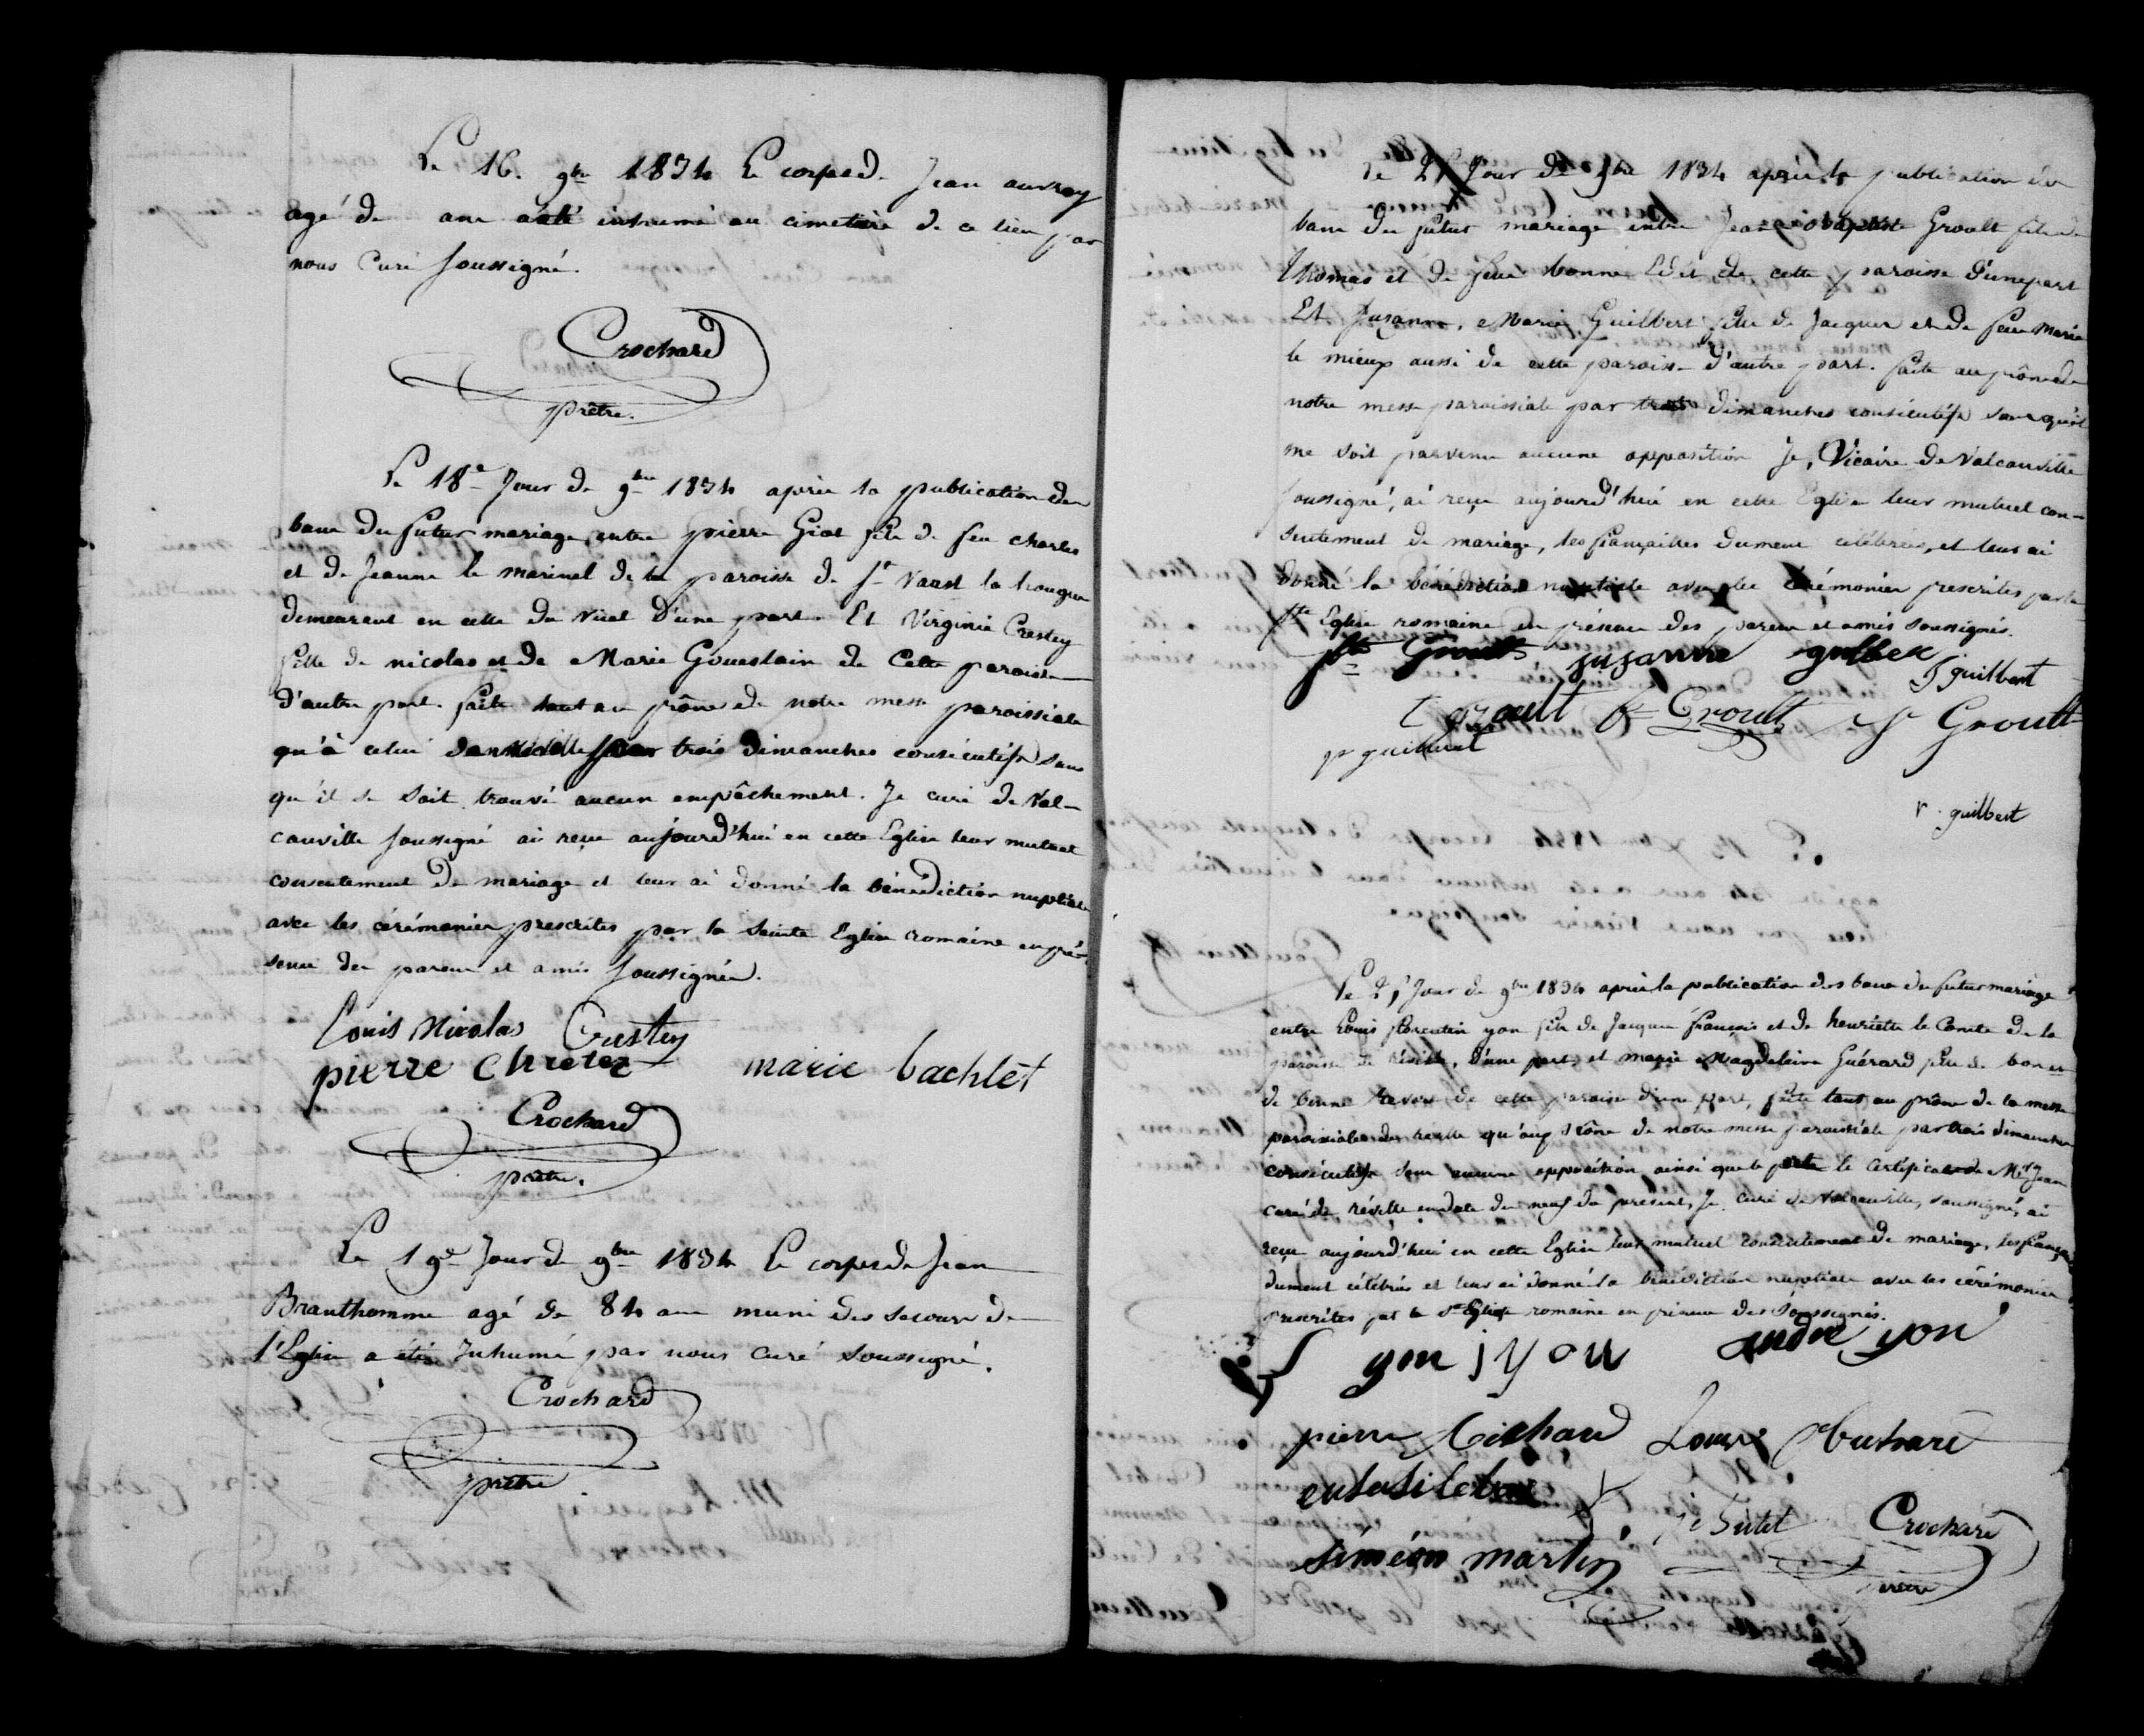 Le 16. 9bre 1834 le corps de Jean auvray
agé de ans a été inhumé au cimetière de ce lieu par
nous Curé soussigné.
Crochard
prêtre.
Le 18e Jour de 9bre 1834 après la publication des
bans du futur mariage entre pierre Giot fils de feu charles
et de Jeanne le marinel de la paroisse de St Vaast la hougue
demeurant en celle du Vicel D'une part. Et Virginie Crestey
fille de nicolas et de Marie Gouestain de Cette paroisse
d'autre part. faite tant au prône de notre messe paroissiale
qu'à celui par trois dimanches consécutifs sans
qu'il se soit trouvé aucun empêchement. Je curé de Val-
canville soussigné ai reçu aujourd'hui en cette Eglise leur mutuel
consentement de mariage et leur ai donné la bénédiction nuptiale
avec les cérémonies prescrites par la Sainte Eglise romaine en pré-
sence des parens et amis soussignés.
Louis Nicolas Crestey
pierre Chretez marie bachlet
Crochard
prêtre.
Le 19e Jour de 9bre 1834 le corps de Jean
Branthomme agé de 84 ans muni des secours de
l'Eglise a été Inhumé par nous Curé soussigné.
Crochard
prêtre
Le Jour de 9bre 1834 après la publication des
bans du futur mariage entre Jean baptiste Groult fils de
Thomas et de feue bonne de cette paroisse d'une part
Et Suzanne, Marie Guilbert fille de Jacques et de feue Marie
le mieux aussi de cette paroisse d'autre part. faite au prône de
notre messe paroissiale par trois dimanches consécutifs sans qu'il
me soit parvenu aucune opposition Je, Vicaire de Valcanville
soussigné, ai reçu aujourd'hui en cette Eglise leur mutuel con-
sentement de mariage, les fiançailles dument célébrées, et leur ai
donné la bénédiction nuptiale avec les cérémonies prescrites par la
Ste Eglise romaine en présence des parens et amis soussignés.
Groult suzanne guilbert
J guilbert
Groult Groult
p guilbert
v. guilbert
Le Jour de 9bre 1834 après la publication des bans du futur mariage
entre Louis florentin yon fils de Jacques françois et de henriette le Comte de la
paroisse de réville, d'une part, et marie Magdeleine Guérard fille de bon et
de bonne de cette paroisse d'une part, faite tant au prône de la messe
paroissiale de réville qu'au prône de notre messe paroissiale par trois dimanches
consécutifs sans aucune opposition ainsi que le porte le certificat de Mr Jean
curé de réville en date du neuf du present, Je, curé de valcanville, soussigné, ai
reçu aujourd'hui en cette Eglise leur mutuel consentement de mariage, les fiançailles
dument célébrées et leur ai donné la bénédiction nuptiale avec les cérémonies
prescrites par la Ste Eglise romaine en présence des soussignés.
yon j yon andre yon
pierre Louise
siméon martin Crochard
prêtre